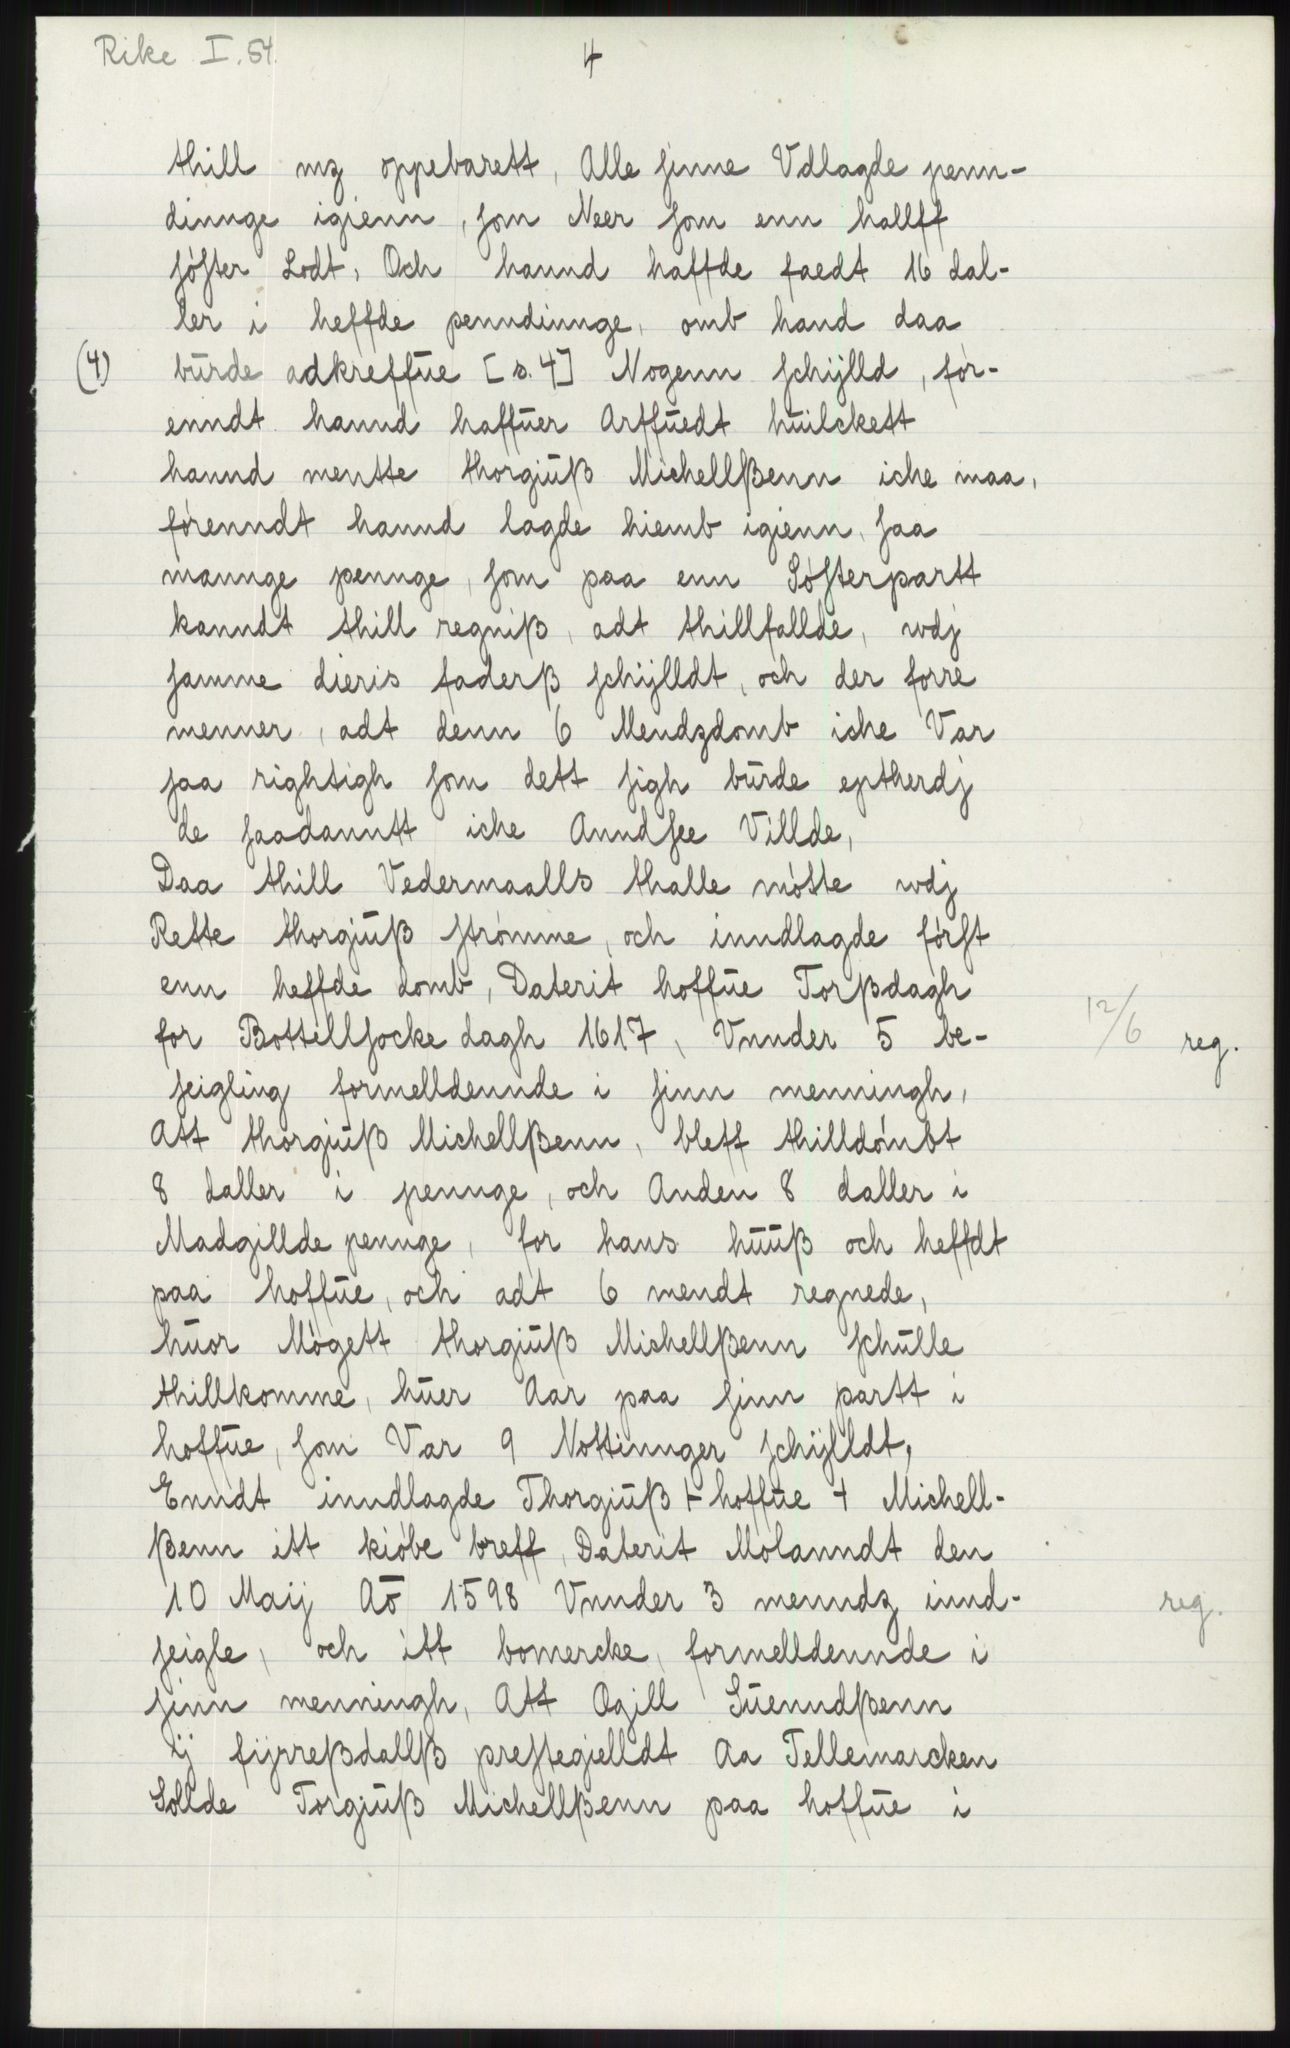 Rike I. 54.
4
thill mz oppebarett, Alle sinne Vdlagde penn-
dinnge igienn, som Neer som enn hallff
søster Lodt, Och hannd haffde faedt 16 dal-
ler i heffde penndinnge, omb hand daa
(4) būrde adkreffūe [s. 4] Nogenn schijlld, før-
enndt hannd haffūer Arffūedt hūilckett
hannd mentte thorgiūß Michellßenn iche maa,
førenndt hannd lagde hiemb igienn, saa
mannge pennge, som paa enn Søsterpartt
kanndt thill regniß, adt thillfallde, wdj
samme dieris faderß schijlldt, och der forre
menner, adt denn 6 Mendzdomb iche Var
saa rightigh som dett sigh būrde eptherdj
de saadanntt iche Anndsee Villde,
Daa thill Vedermaalls thalle møtte wdj
Rette thorgiūß strømme, och inndlagde først
enn heffde domb, Daterit hoffūe Torßdagh
for Bottellsocke dagh 1617, Vnnder 5 be- 12/6 reg.
seigling formelldennde i sinn menningh,
Att thorgiūß Michellßenn, bleff thilldømbt
8 daller i pennge, och Anden 8 daller i
Madgillde pennge, for hans hūūß och heffdt
paa hoffūe, och adt 6 mendt regnede,
hūor Møgett thorgiūß Michellßenn schūlle
thillkomme, hūer Aar paa sinn partt i
hoffūe, som Var 9 Nottinnger schijlldt,
Enndt inndlagde Thorgiūß + hoffūe + Michell-
ßenn itt kiøbe breff, Daterit Mølanndt den
10 Maij Aō 1598 Vnnder 3 menndz innd- reg.
seigle, och itt bomercke, formelldennde i
sinn menningh, Att Ogill Sūenndßenn
ij fijrreßdallß prestegielldt Aa Tellemarcken
Sollde Torgiūß Michellßenn paa hoffūe i